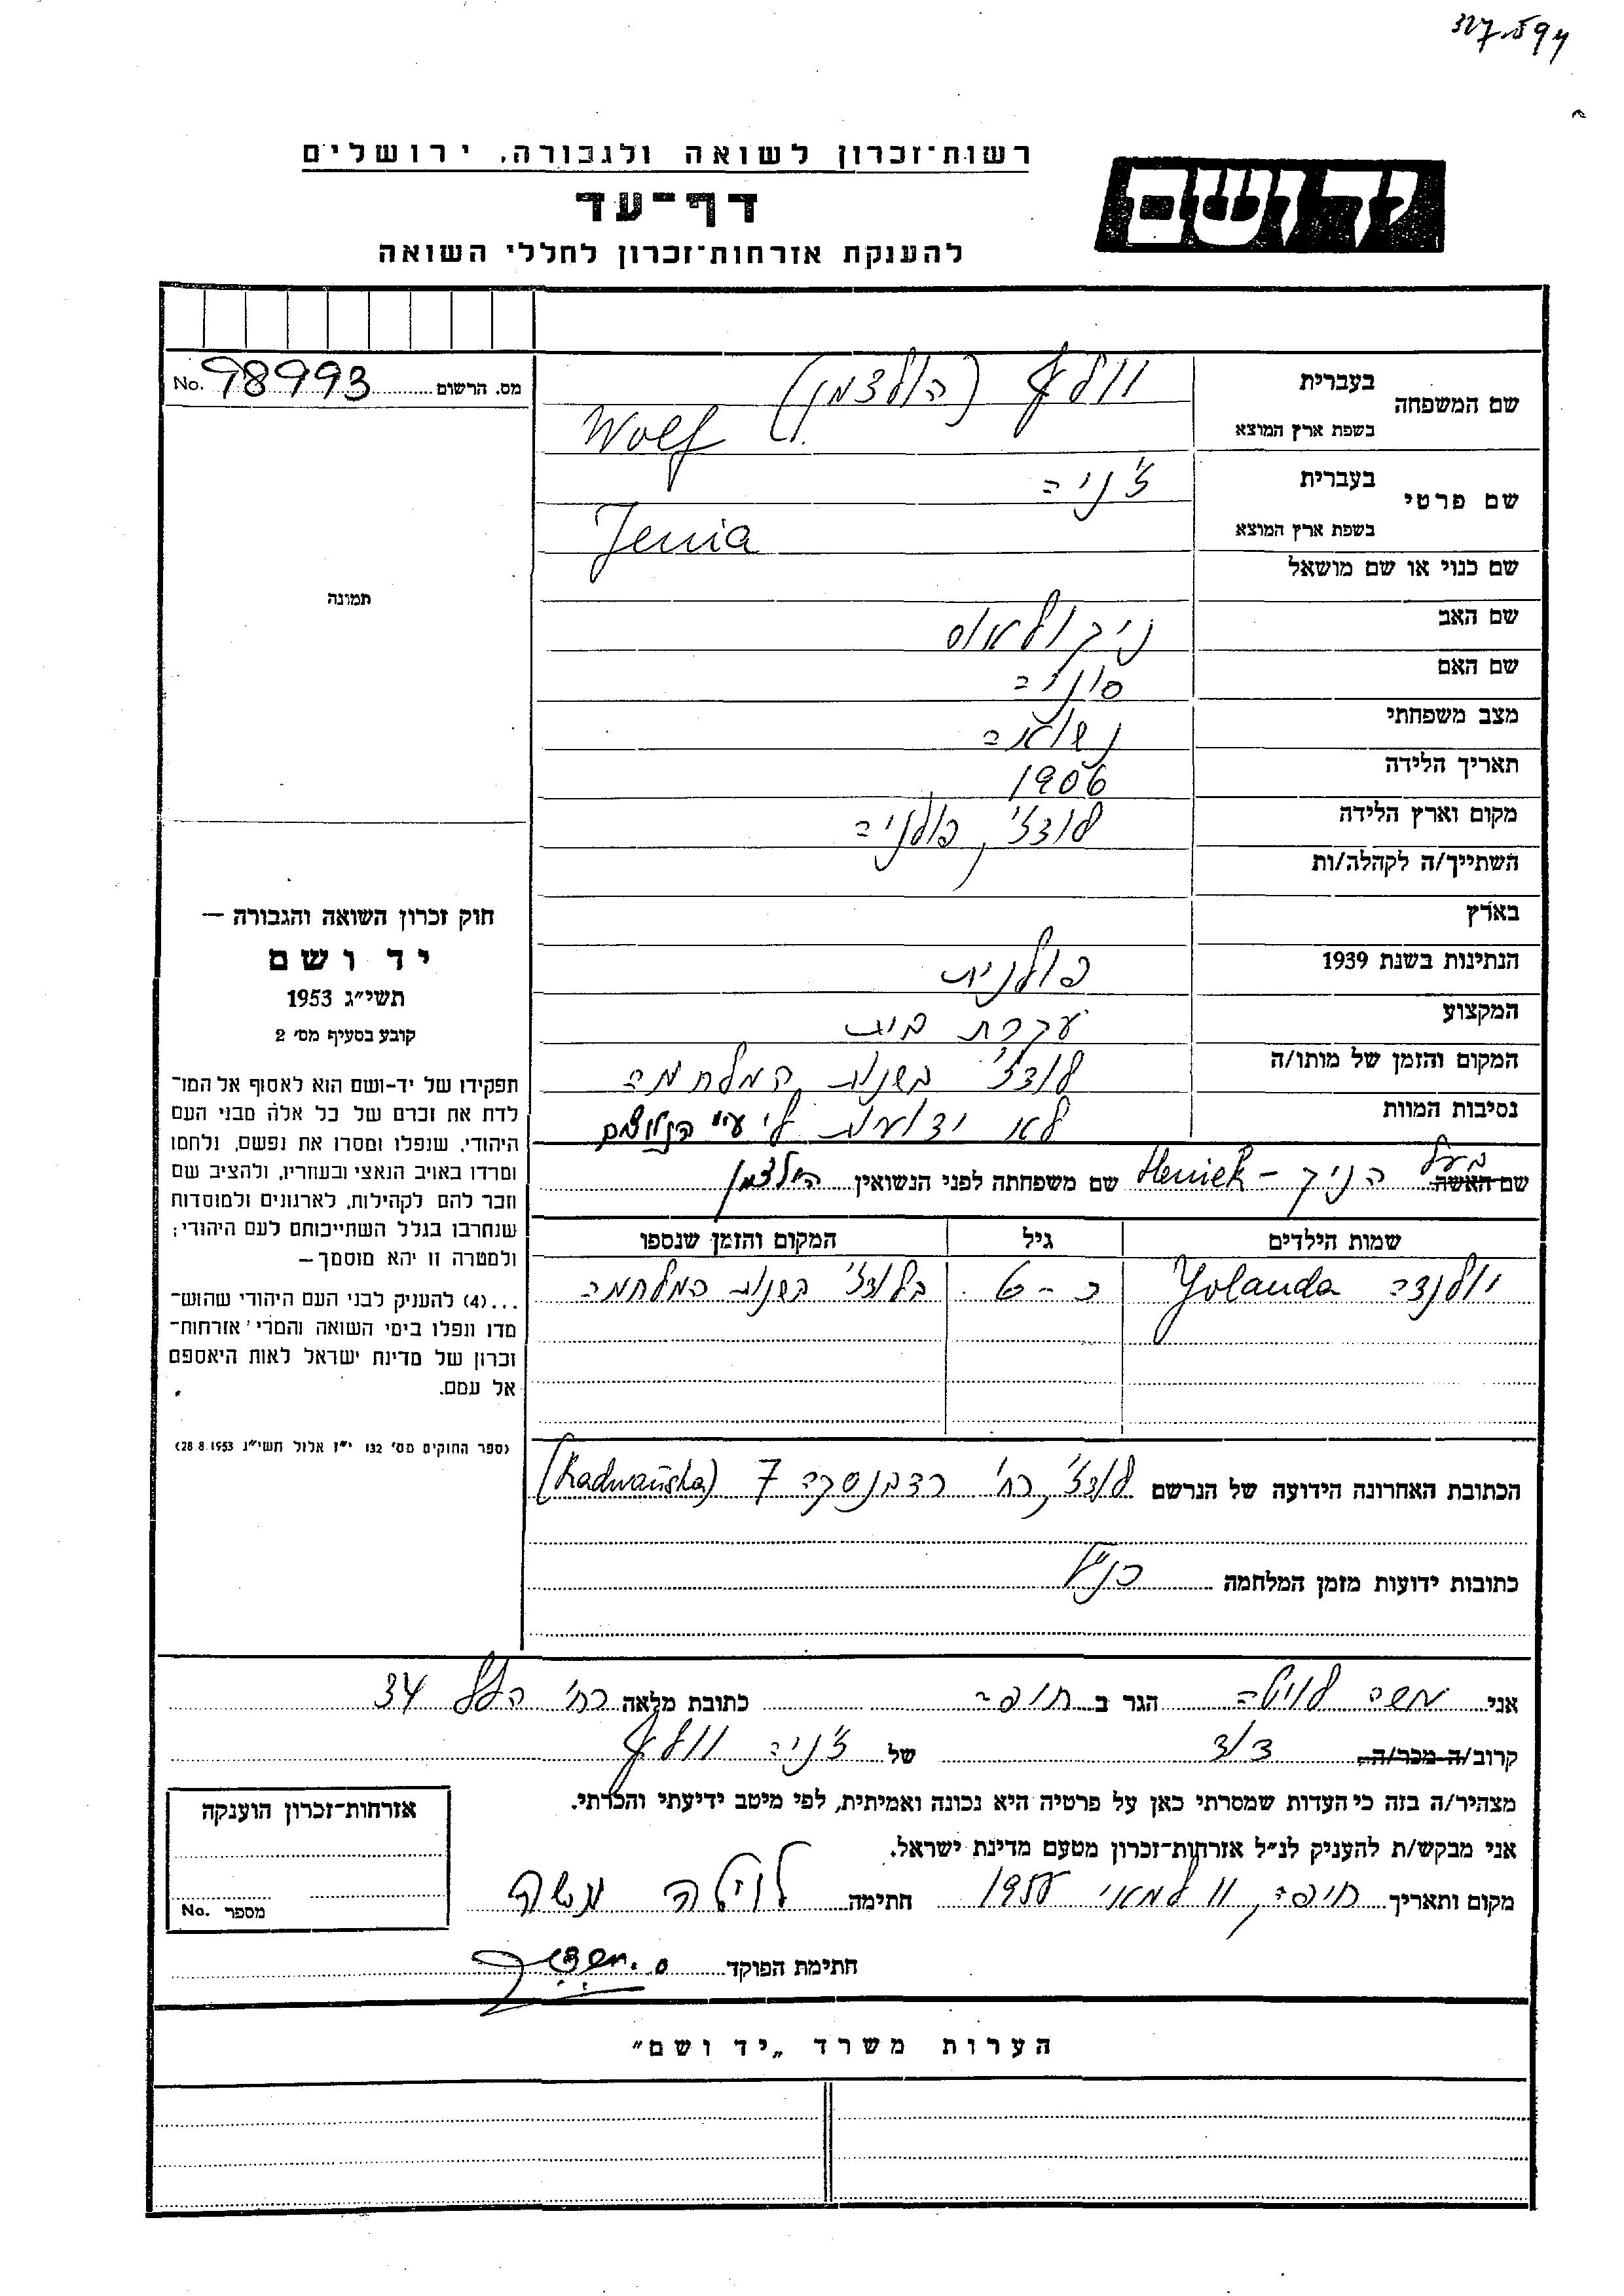 327.594
רשות־זכרון לשואה ולגבורה, ירושלים
יד ושם
דף־עד
להענקת אזרחות־זכרון לחללי השואה
מס. הרשום 98993 No.
תמונה
חוק זכרון השואה והגבורה —
יד ושם
תשי״ג 1953
קובע בסעיף מס׳ 2
תפקידו של יד-ושם הוא לאסוף אל המו־
לדת את זכרם של כל אלה מבני העם
היהודי, שנפלו ומסרו את נפשם, נלחמו
ומרדו באויב הנאצי ובעוזריו, ולהציב שם
וזכר להם לקהילות, לארגונים ולמוסדות
שנחרבו בגלל השתייכותם לעם היהודי;
ולמטרה זו יהא מוסמך —
...(4) להעניק לבני העם היהודי שהוש־
מדו ונפלו בימי השואה והמרי אזרחות־
זכרון של מדינת ישראל לאות היאספם
אל עמם.
(ספר החוקים מס׳ 132 י״ז אלול תשי״ג 28.8.1953)
שם המשפחה בעברית וולף (הולצמן)
בשפת ארץ המוצא Wolf
שם פרטי בעברית ז׳ניה
בשפת ארץ המוצא Jenia
שם כנוי או שם מושאל
שם האב ניקולאוס
שם האם סוניה
מצב משפחתי נשואה
תאריך הלידה 1906
מקום וארץ הלידה לודז׳, פולניה
השתייך/ה לקהלה/ות
בארץ
הנתינות בשנת 1939 פולנית
המקצוע עקרת בית
המקום והזמן של מותו/ה לודז׳ בשנות המלחמה
נסיבות המוות לא ידועות לי ע״י הנאצים
שם האשה בעל הניק - Heniek שם משפחתה לפני הנשואין הולצמן
שמות הילדים גיל המקום והזמן שנספו
יולנדה Yolanda כ - 6 בלודז׳ בשנות המלחמה
הכתובת האחרונה הידועה של הנרשם לודז׳, רח׳ רדבנסקה 7 (Radwańska)
כתובות ידועות מזמן המלחמה כנ״ל
אני משה לויטה הגר ב חיפה כתובת מלאה רח׳ הלל 34
קרוב/ה מכר/ה דוד של ז׳ניה וולף
מצהיר/ה בזה כי העדות שמסרתי כאן על פרטיה היא נכונה ואמיתית, לפי מיטב ידיעתי והכרתי.
אני מבקש/ת להעניק לנ״ל אזרחות־זכרון מטעם מדינת ישראל.
מקום ותאריך חיפה, 11 למאי חתימה לויטה משה
חתימת הפוקד
אזרחות־זכרון הוענקה
מספר No.
הערות משרד „יד ושם״